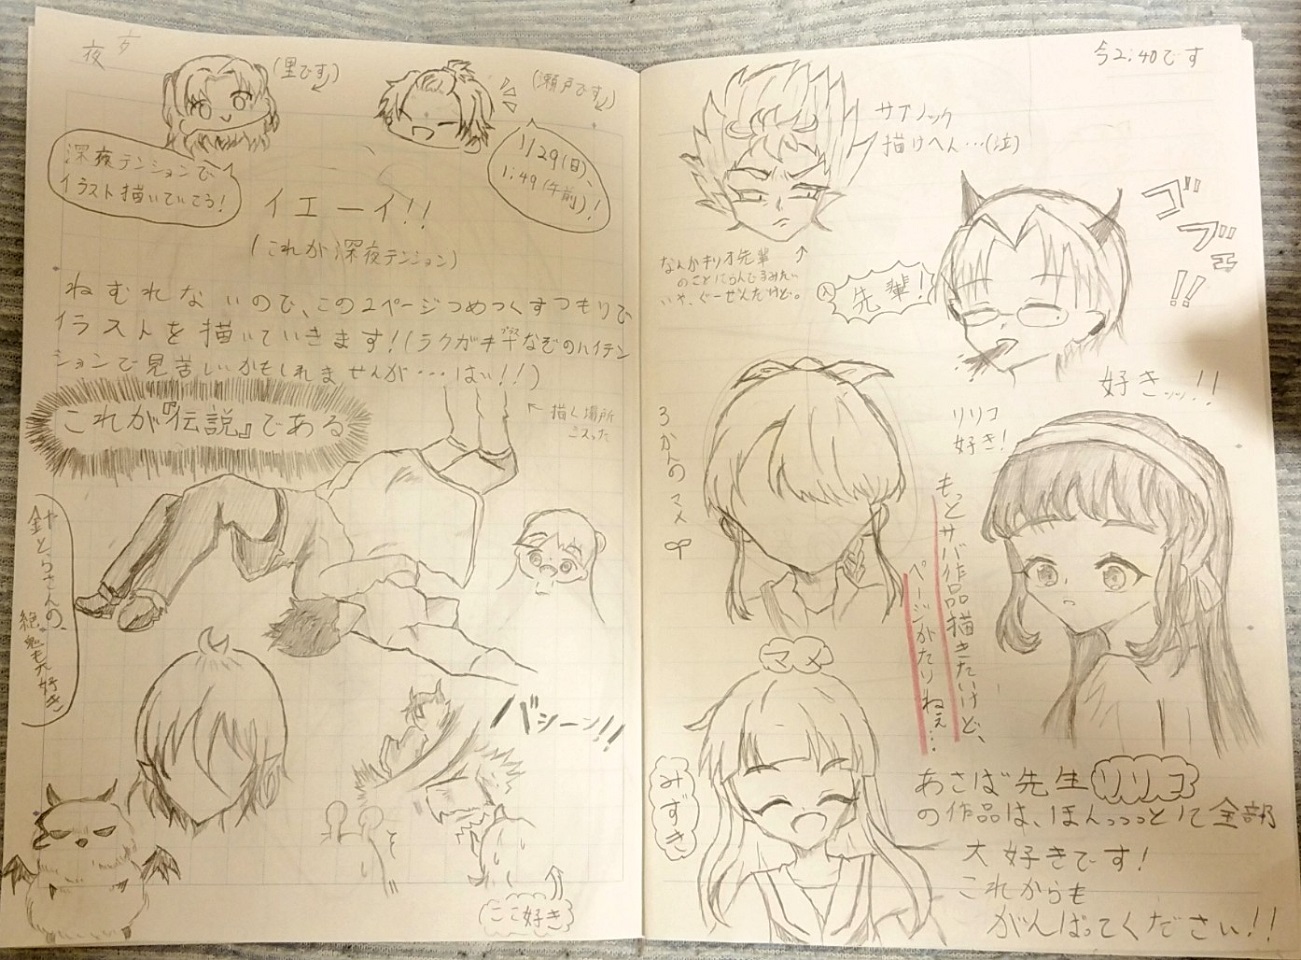 夜
(里です)
(瀬戸です)
深夜テンションで
イラスト描いていこう!
1/29(日)、
1:49(午前)!
イエーイ!!
(これが深夜テンション)
ねむれないので、この2ページつめつくすつもりで
イラストを描いていきます!(ラクガキ+なぞのハイテン
ションで見苦しいかもしれませんが…はい!!)
これが『伝説』である
←描く場所
ミスった
絶鬼も大好き
バシーン!!
ここ好き
今2:40です
サイノック
描けへん…(泣)
なんかキリオ先輩
のことにらんでるみたい
いや、ぐーぜんだけど。
入
先輩!
ゴブェ!!
好きッッ!!
リリコ
好き!
3かんのマメ
もっとサバ作品描きたいけど、
ページがたりねぇ…
マメ
みずき
あさば先生 リリコ
の作品は、ほんっっっとして全部
大好きです!
これからも
がんばってください!!